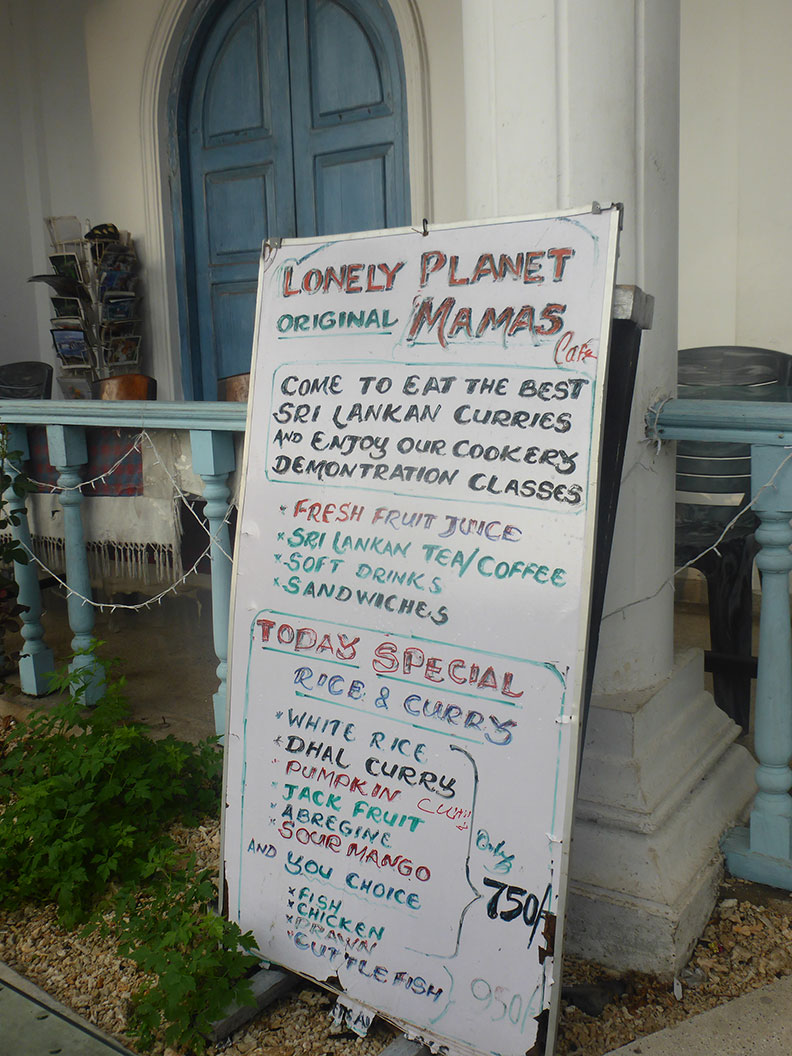 LONELY PLANET
ORIGINAL MAMAS
Café
COME TO EAT THE BEST
SRI LANKAN CURRIES
AND ENJOY OUR COOKERY
DEMONTRATION CLASSES
* FRESH FRUIT JUICE
* SRI LANKAN TEA/COFFEE
* SOFT DRINKS
* SANDWICHES
TODAY SPECIAL
RICE & CURRY
* WHITE RICE
* DHAL CURRY
* PUMPKIN CURRY
* JACK FRUIT
* ABREGINE
* SOUR MANGO
AND YOU CHOICE
Only 750/-
* FISH
* CHICKEN
* PRAWN
* CUTTLE FISH
950/-